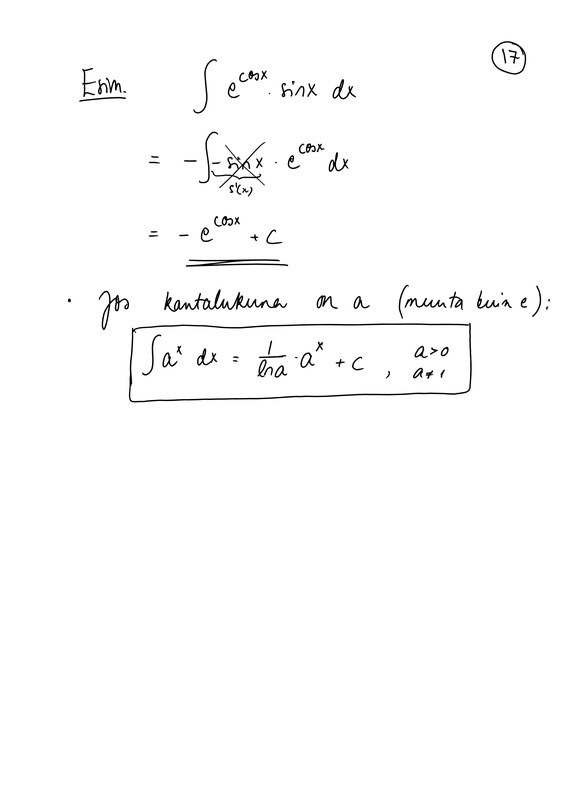 17
Esim. ∫ e^cosx · sinx dx
= - ∫ - sin x · e^cosx dx
s'(x)
= - e^cosx + C
• Jos kantalukuna on a (muuta kuin e):
∫ a^x dx = 1/ln a · a^x + C , a>0
a≠1